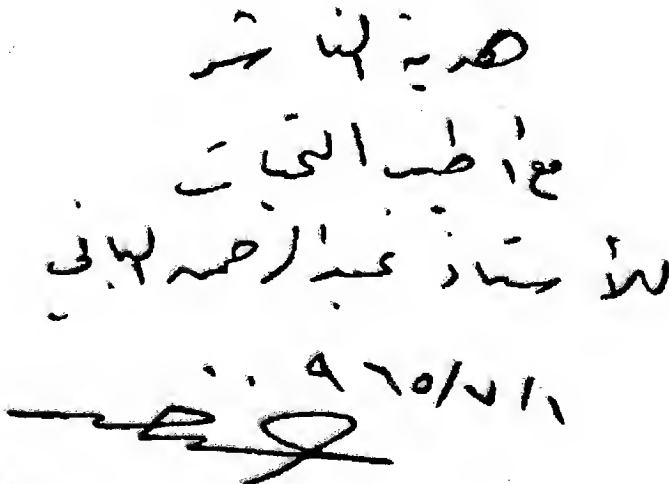 هدية الناشر
مع أطيب التحيات
للأستاذ عبدالرحمن الباني
٩٦٥/٧/١